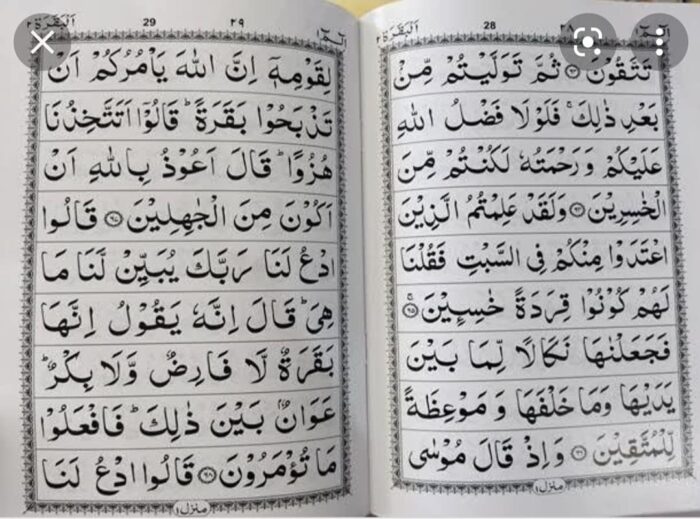 الٓمّٓ ١ ٢٨ 28 اَلْبَقَرَة ٢
تَتَّقُوْنَ ﴿٦٣﴾ ثُمَّ تَوَلَّيْتُمْ مِّنْۢ
بَعْدِ ذٰلِكَ ۚ فَلَوْلَا فَضْلُ اللّٰهِ
عَلَيْكُمْ وَرَحْمَتُهٗ لَكُنْتُمْ مِّنَ
الْخٰسِرِيْنَ ﴿٦٤﴾ وَلَقَدْ عَلِمْتُمُ الَّذِيْنَ
اعْتَدَوْا مِنْكُمْ فِى السَّبْتِ فَقُلْنَا
لَهُمْ كُوْنُوْا قِرَدَةً خٰسِـِٕيْنَ ﴿٦٥﴾ ۚ
فَجَعَلْنٰهَا نَكَالًا لِّمَا بَيْنَ
يَدَيْهَا وَمَا خَلْفَهَا وَمَوْعِظَةً
لِّلْمُتَّقِيْنَ ﴿٦٦﴾ وَاِذْ قَالَ مُوْسٰى
منزل ١
الٓمّٓ ١ ٢٩ 29 اَلْبَقَرَة ٢
لِقَوْمِهٖۤ اِنَّ اللّٰهَ يَاْمُرُكُمْ اَنْ
تَذْبَحُوْا بَقَرَةً ؕ قَالُوْۤا اَتَتَّخِذُنَا
هُزُوًا ؕ قَالَ اَعُوْذُ بِاللّٰهِ اَنْ
اَكُوْنَ مِنَ الْجٰهِلِيْنَ ﴿٦٧﴾ قَالُوا
ادْعُ لَنَا رَبَّكَ يُبَيِّنْ لَّنَا مَا
هِىَ ؕ قَالَ اِنَّهٗ يَقُوْلُ اِنَّهَا
بَقَرَةٌ لَّا فَارِضٌ وَّلَا بِكْرٌ ؕ
عَوَانٌۢ بَيْنَ ذٰلِكَ ؕ فَافْعَلُوْا
مَا تُؤْمَرُوْنَ ﴿٦٨﴾ قَالُوا ادْعُ لَنَا
منزل ١